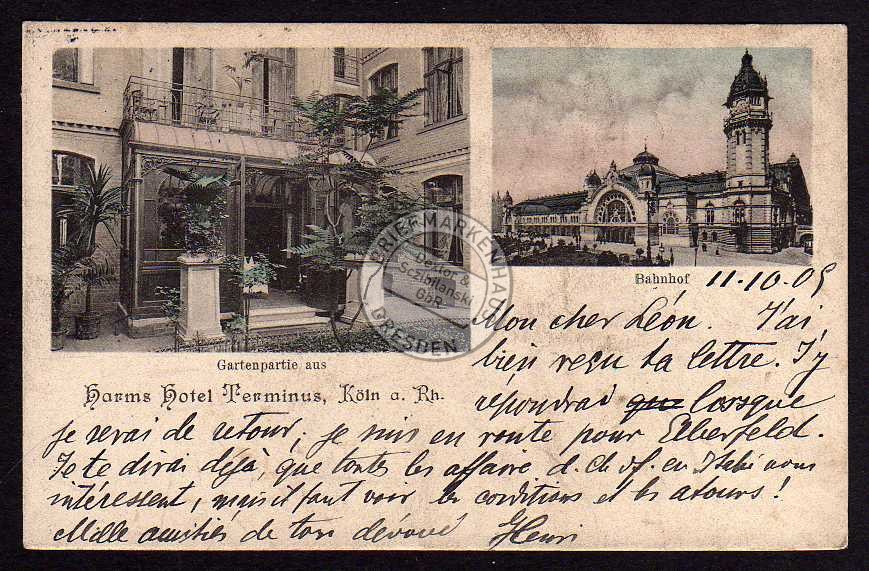 Bahnhof
11-10-05
Gartenpartie aus
Harms Hotel Terminus, Köln a. Rh.
BRIEFMARKENHAUS
Dexter &
Scibilanski
GbR
DRESDEN
Mon cher Léon. J'ai
bien reçu ta lettre. J'y
répondrai lorsque
je serai de retour; je suis en route pour Elberfeld.
Je te dirai déjà, que toutes les affaire. d. ch. d. f. en Italie nous
intéressent, mais il faut voir les conditions et les atours!
Mille amitiés de ton dévoué Henri